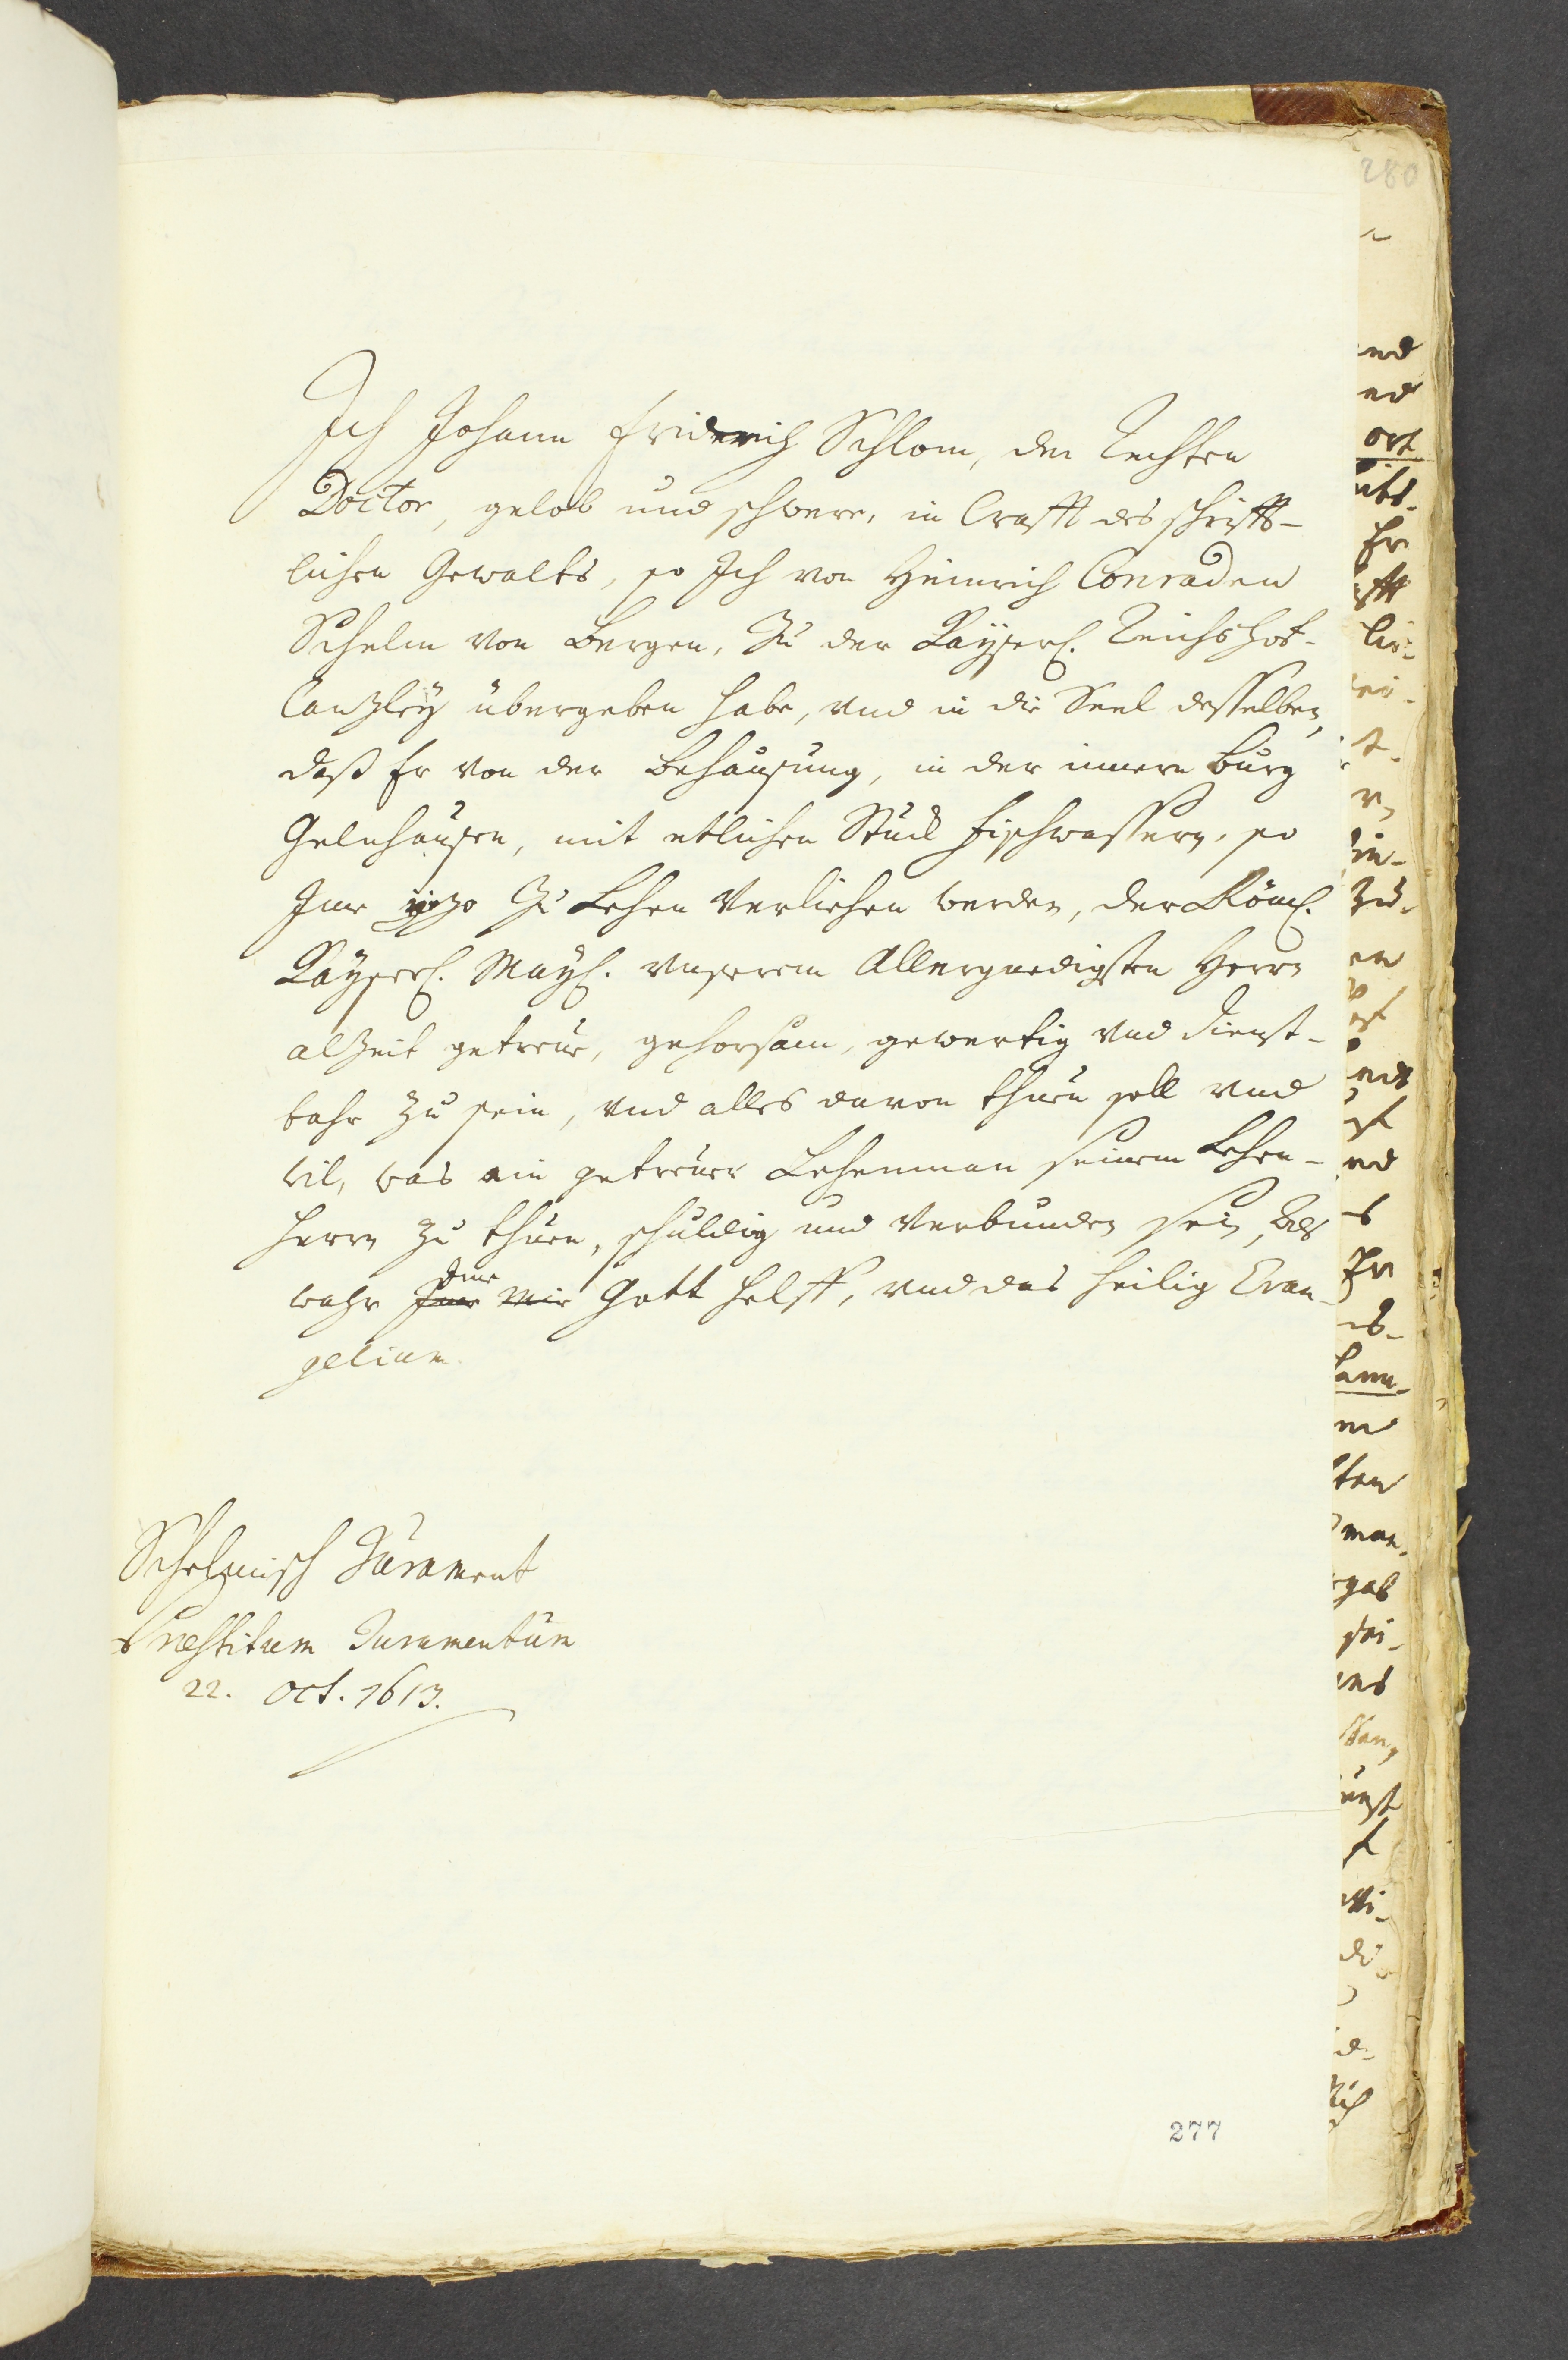 280
Ich Johann Friderich Schlom, der Rechten
Doctor, gelob und schwere, in Crafft des schrifft-
lichen Gewalts, so Ich von Heinrich Conraden
Schelm von Bergen, Zu der Kayserl. Reichshof-
Canzleÿ übergeben habe, vnd in die Seel desselben,
daß Er von der Behausung, in der innern Burg
Gelnhausen, mit etlichen Stuck Fischwassern, so
Ime yezo Zu Lehen Verliehen werden, der Röm.
Kayserl. Mayl. vnserem Allergnedigsten Herrn
alzeit getreue, gehorsam, gewertig vnd dienst-
bahr zu sein, vnd alles davon thuen soll vnd
wil, was ein getreuer Lehenman seinem Lehen-
herrn zu thuen, schuldig und Verbunden sein, Als
wahr Ime mir Gott helff, vnd das heilig Evan-
gelium.
Schelmisch Jurament
Præstitum Juramentum
22. Oct. 1613.
277